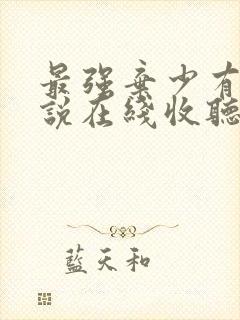 最强弃少有
說在綫收聽
藍天和